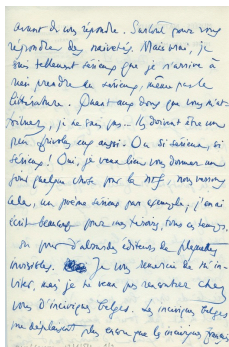 avant de vous répondre. Surtout pour vous
répondre des naïvetés. Mais moi, je
suis tellement sérieux que je n'arrive à
rien prendre au sérieux, même pas la
littérature. Quant aux dons que vous m'at-
tribuez, je ne sais pas. Ils doivent être un
peu frivoles eux aussi. Ou si sérieux, si
sérieux ! Oui, je veux bien vous donner un
jour quelque chose pour la NRF, nous verrons
cela, un poème sérieux par exemple, j'en ai
écrit beaucoup pour mes tiroirs, tous ces temps.
ou pour d'absurdes éditeurs de plaquettes
invisibles. Je vous remercie de m'in-
viter, mais je ne veux pas rencontrer chez
vous d'inciviques belges. Les inciviques belges
me déplaisent plus encore que les inciviques français